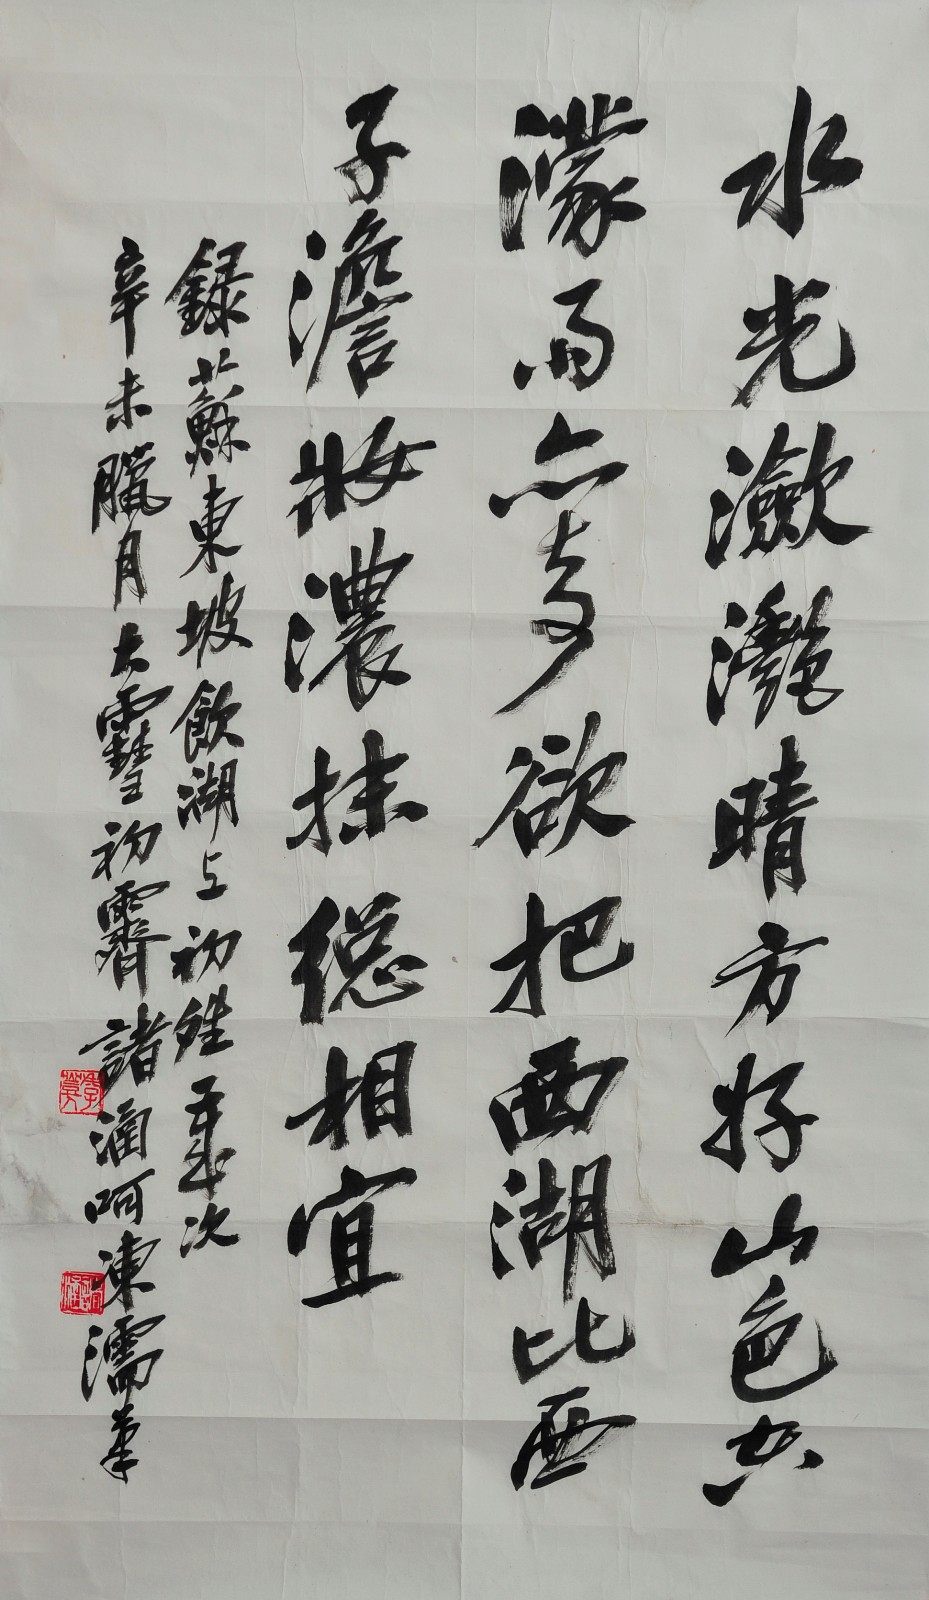 水光瀲灩晴方好山色空
濛雨亦奇欲把西湖比西
子澹妝濃抹總相宜
錄蘇東坡飲湖上初晴 歲次
辛未臘月大雪初霽諸涵呵凍濡筆